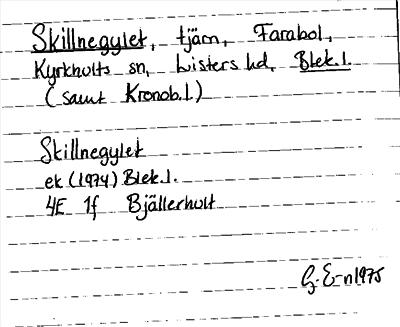 Skillnegylet, tjärn, Farabol,
Kyrkhults sn, Listers hd, Blek.l.
(samt Kronob.l.)
Skillnegylet
ek (1974) Blek.l.
4E 1f Bjällerhult
G. E-n 1975